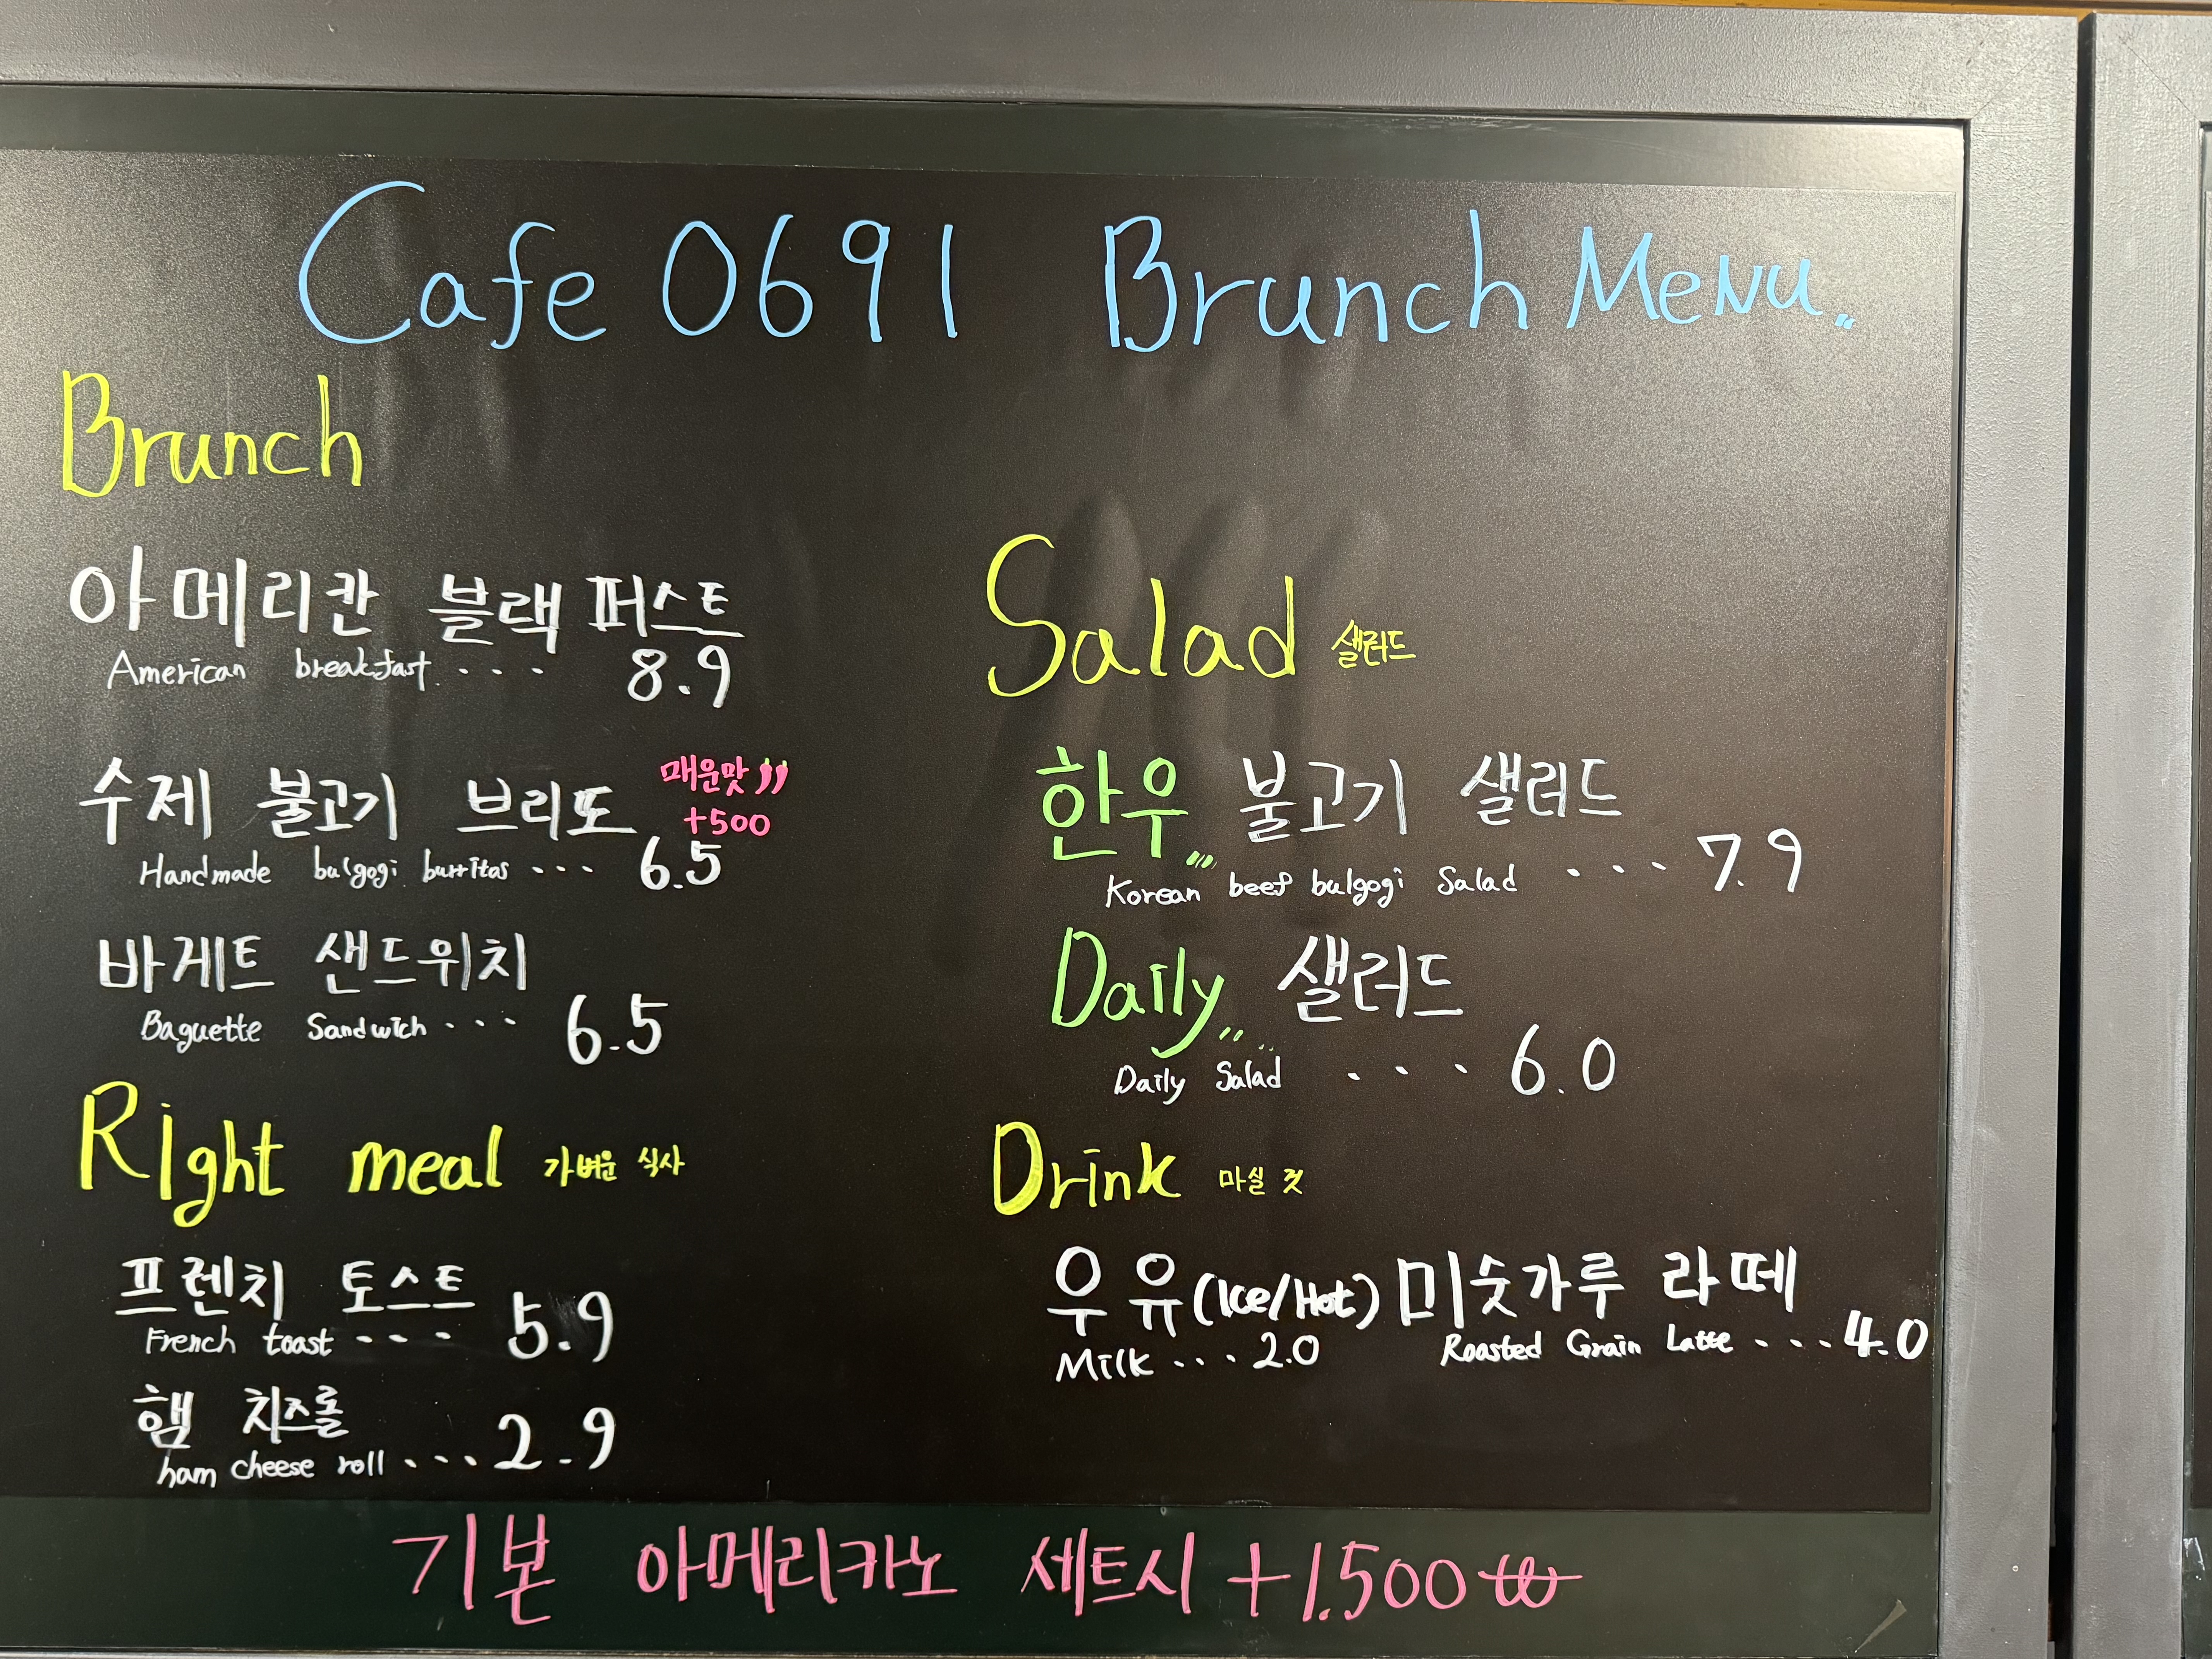 Cafe 0691 Brunch Menu
Brunch
아메리칸 블랙퍼스트
American breakfast ... 8.9
수제 불고기 브리또 매운맛
+500
Handmade bulgogi burritos ... 6.5
바게트 샌드위치
Baguette Sandwich ... 6.5
Right meal 가벼운 식사
프렌치 토스트
French toast ... 5.9
햄 치즈롤
ham cheese roll ... 2.9
Salad 샐러드
한우 불고기 샐러드
Korean beef bulgogi Salad ... 7.9
Daily 샐러드
Daily Salad ... 6.0
Drink 마실 것
우유 (Ice/Hot) 미숫가루 라떼
Milk ... 2.0 Roasted Grain Latte ... 4.0
기본 아메리카노 세트시 +1.500₩